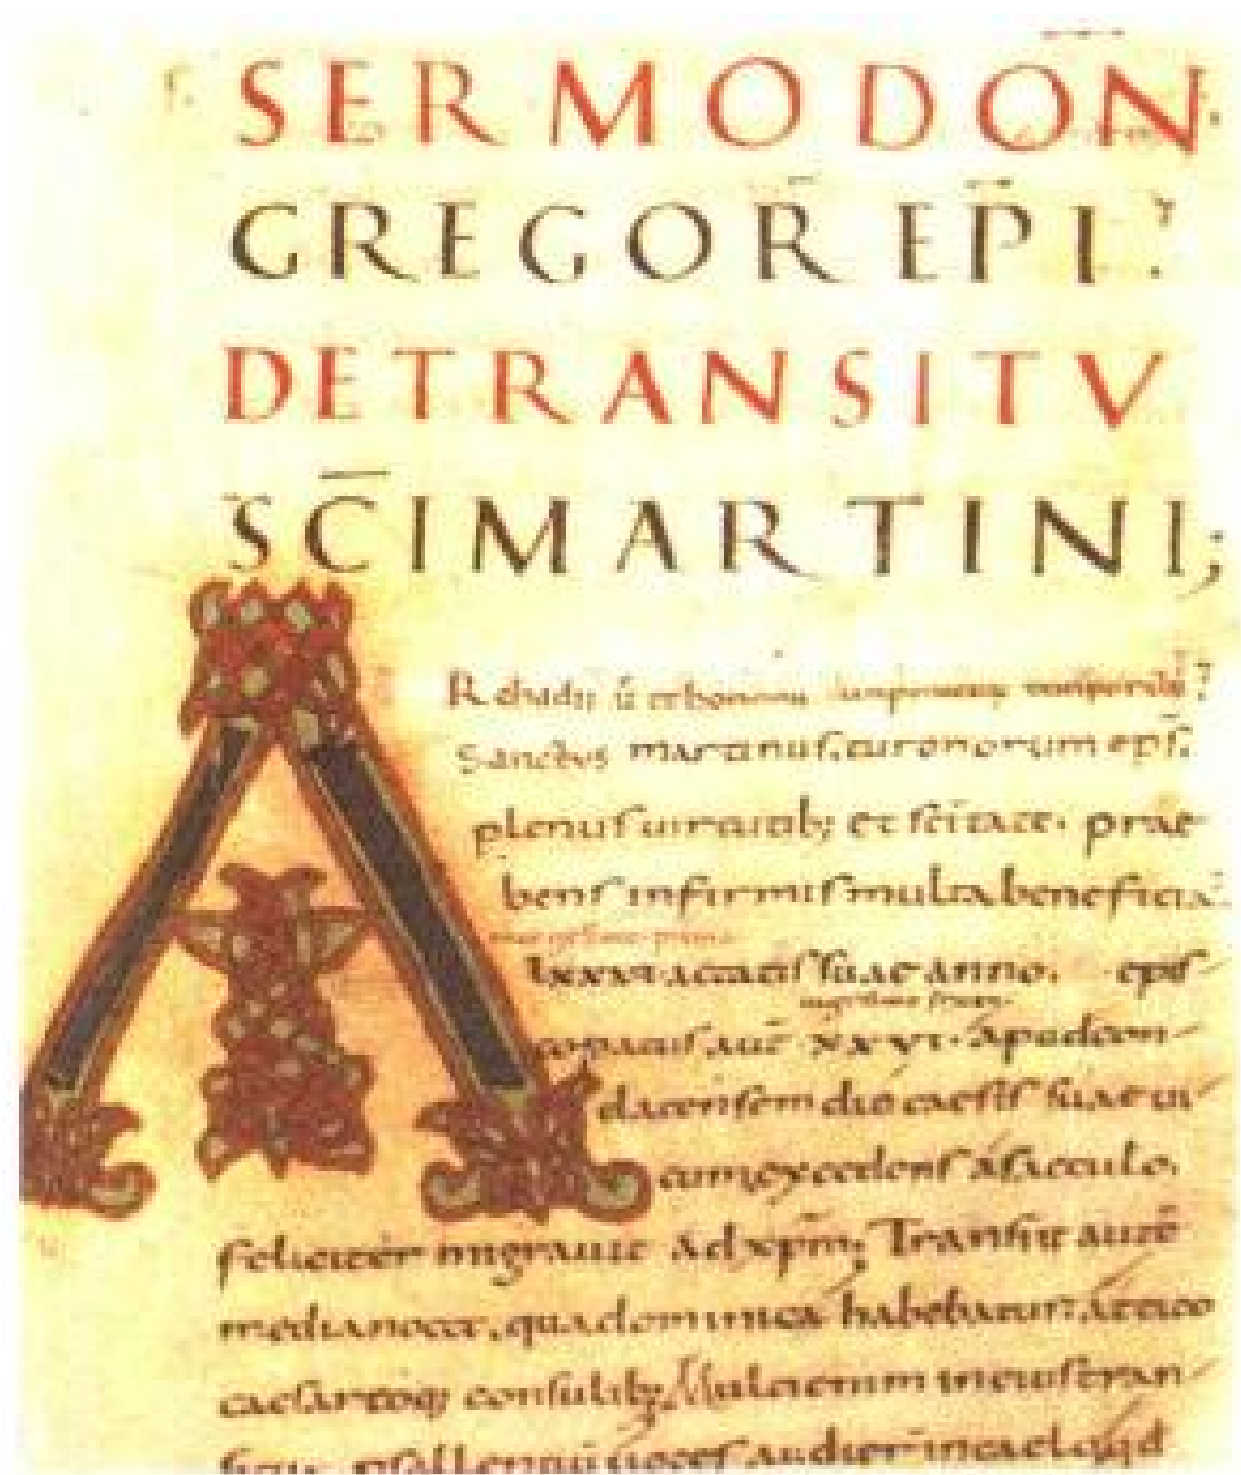 SERMO DOÑ
GREGOR̄ EP̄I
DE TRANSITV
SC̄I MARTINI;
ARchadii ū et honorii
Sanctus martinus turonorum ep̄s.
plenus uirtutib; et sc̄itate. prae
bens infirmis multa beneficia.
lxxxi aetatis suae anno. epis
copatus aut̄ xxvi. apud con
dacensem dioceesis suae ui
cum, excedens a saeculo,
feliciter migrauit ad xp̄m; Transiit aut̄
media nocte, qua dominica habebatur. attico
caesarioq; consulib; Multi enim in eius tran
situ. psallentiū uoces audier̄ in caelo,